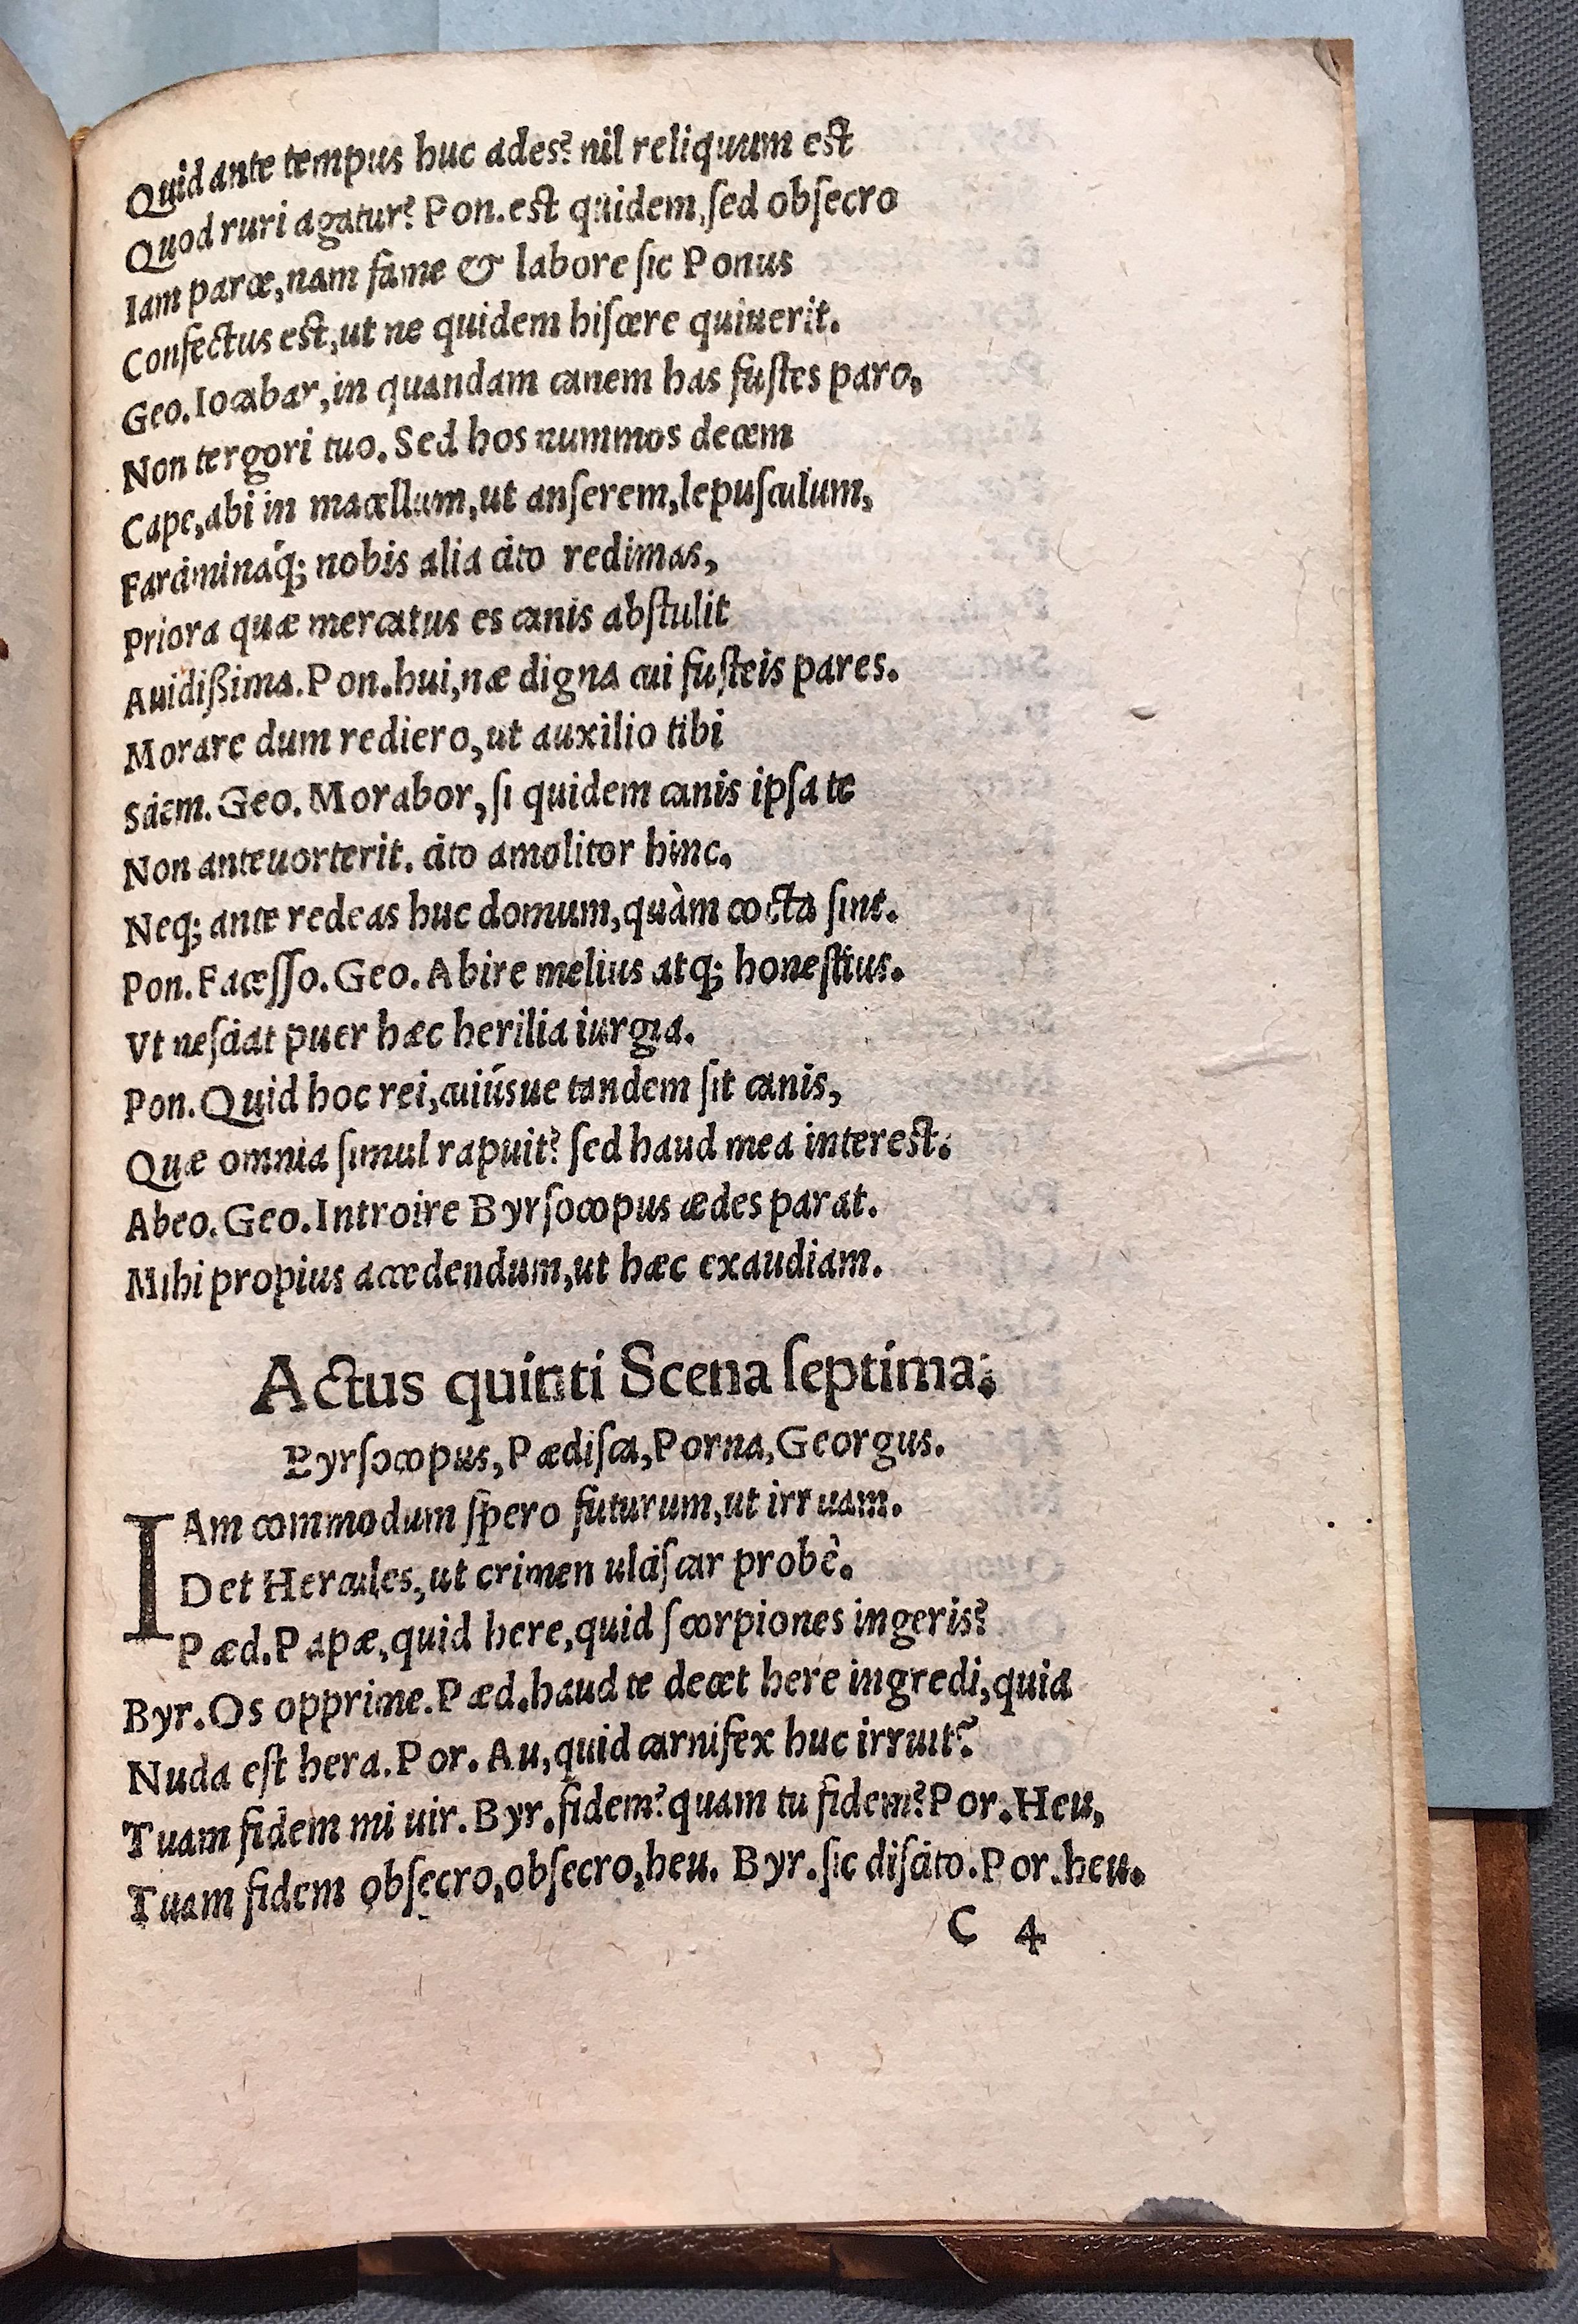 Quid ante tempus huc ades? nil reliquum est
Quod ruri agatur? Pon. est quidem, sed obſecro
Iam parce, nam fame & labore ſic Ponus
Confectus est, ut ne quidem hiſcere quiuerit.
Geo. Iocabar, in quandam canem has fuſtes paro,
Non tergori tuo. Sed hos nummos decem
Cape, abi in macellum, ut anſerem, lepuſculum,
Farciminaq́; nobis alia cito redimas,
Priora quæ mercatus es canis abſtulit
Auidißima. Pon. hui, næ digna cui fuſteis pares.
Morare dum rediero, ut auxilio tibi
Sáem. Geo. Morabor, ſi quidem canis ipſa te
Non anteuorterit. cito amolitor hinc,
Neq; ante redeas huc domum, quàm cocta ſint.
Pon. Faceſſo. Geo. Abire melius atq; honeſtius.
Vt neſciat puer hæc herilia iurgia.
Pon. Quid hoc rei, cuiúsue tandem ſit canis,
Quæ omnia ſimul rapuit? ſed haud mea interest.
Abeo. Geo. Introire Byrſocopus ædes parat.
Mihi propius accedendum, ut hæc exaudiam.
Actus quinti Scena ſeptima.
Byrſocopus, Pædiſca, Porna, Georgus.
IAm commodum ſpero futurum, ut irruam.
Det Hercules, ut crimen ulciſcar probè.
Pæd. Papæ, quid here, quid ſcorpiones ingeris?
Byr. Os opprime. Pæd. haud te decet here ingredi, quia
Nuda eſt hera. Por. Au, quid carnifex huc irruit?
Tuam fidem mi uir. Byr. fidem? quam tu fidem? Por. Heu,
Tuam fidem obſecro, obſecro, heu. Byr. ſic diſcito. Por. heu.
C 4